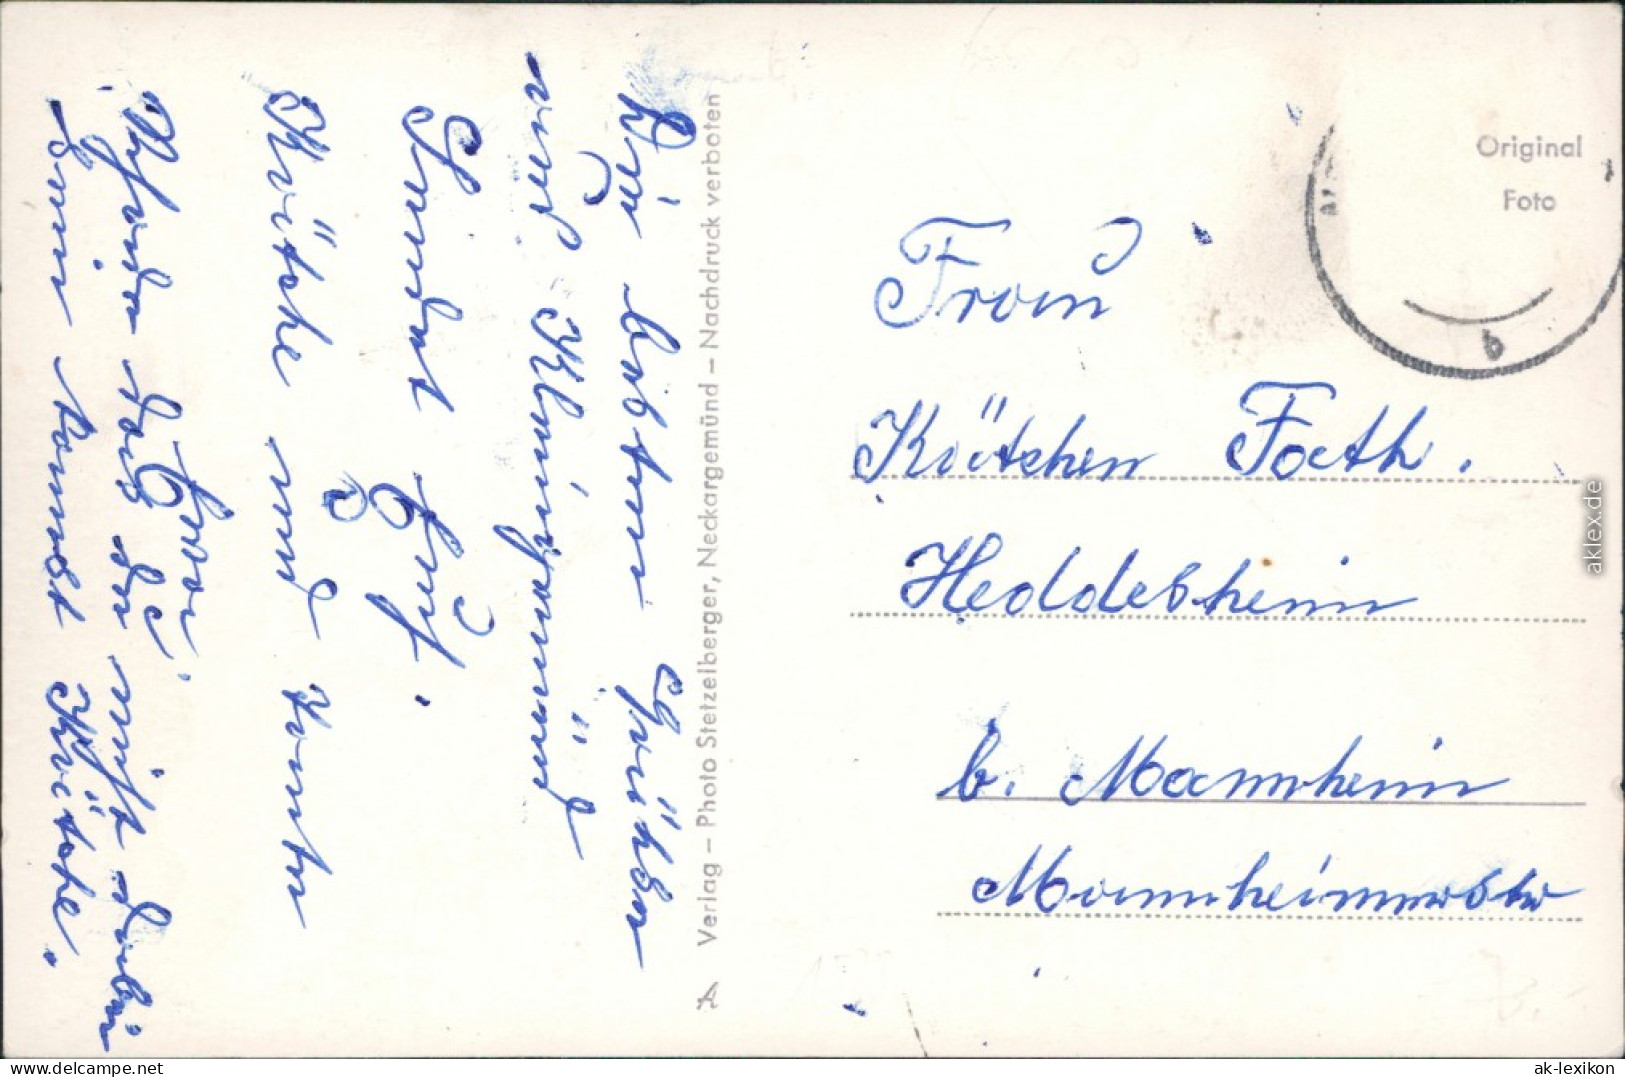 Die besten Grüße
aus Kleingemünd
sendet Euch.
Käthe und Tante
Eva.
Schade das du nicht dabei
sein kannst Käthe.
Verlag – Photo Stetzelberger, Neckargemünd – Nachdruck verboten
Original
Foto
b
Frau
Kätchen Fath.
Heddesheim
b. Mannheim
Mannheimerstr
aklex.de
www.delcampe.net
ak-lexikon